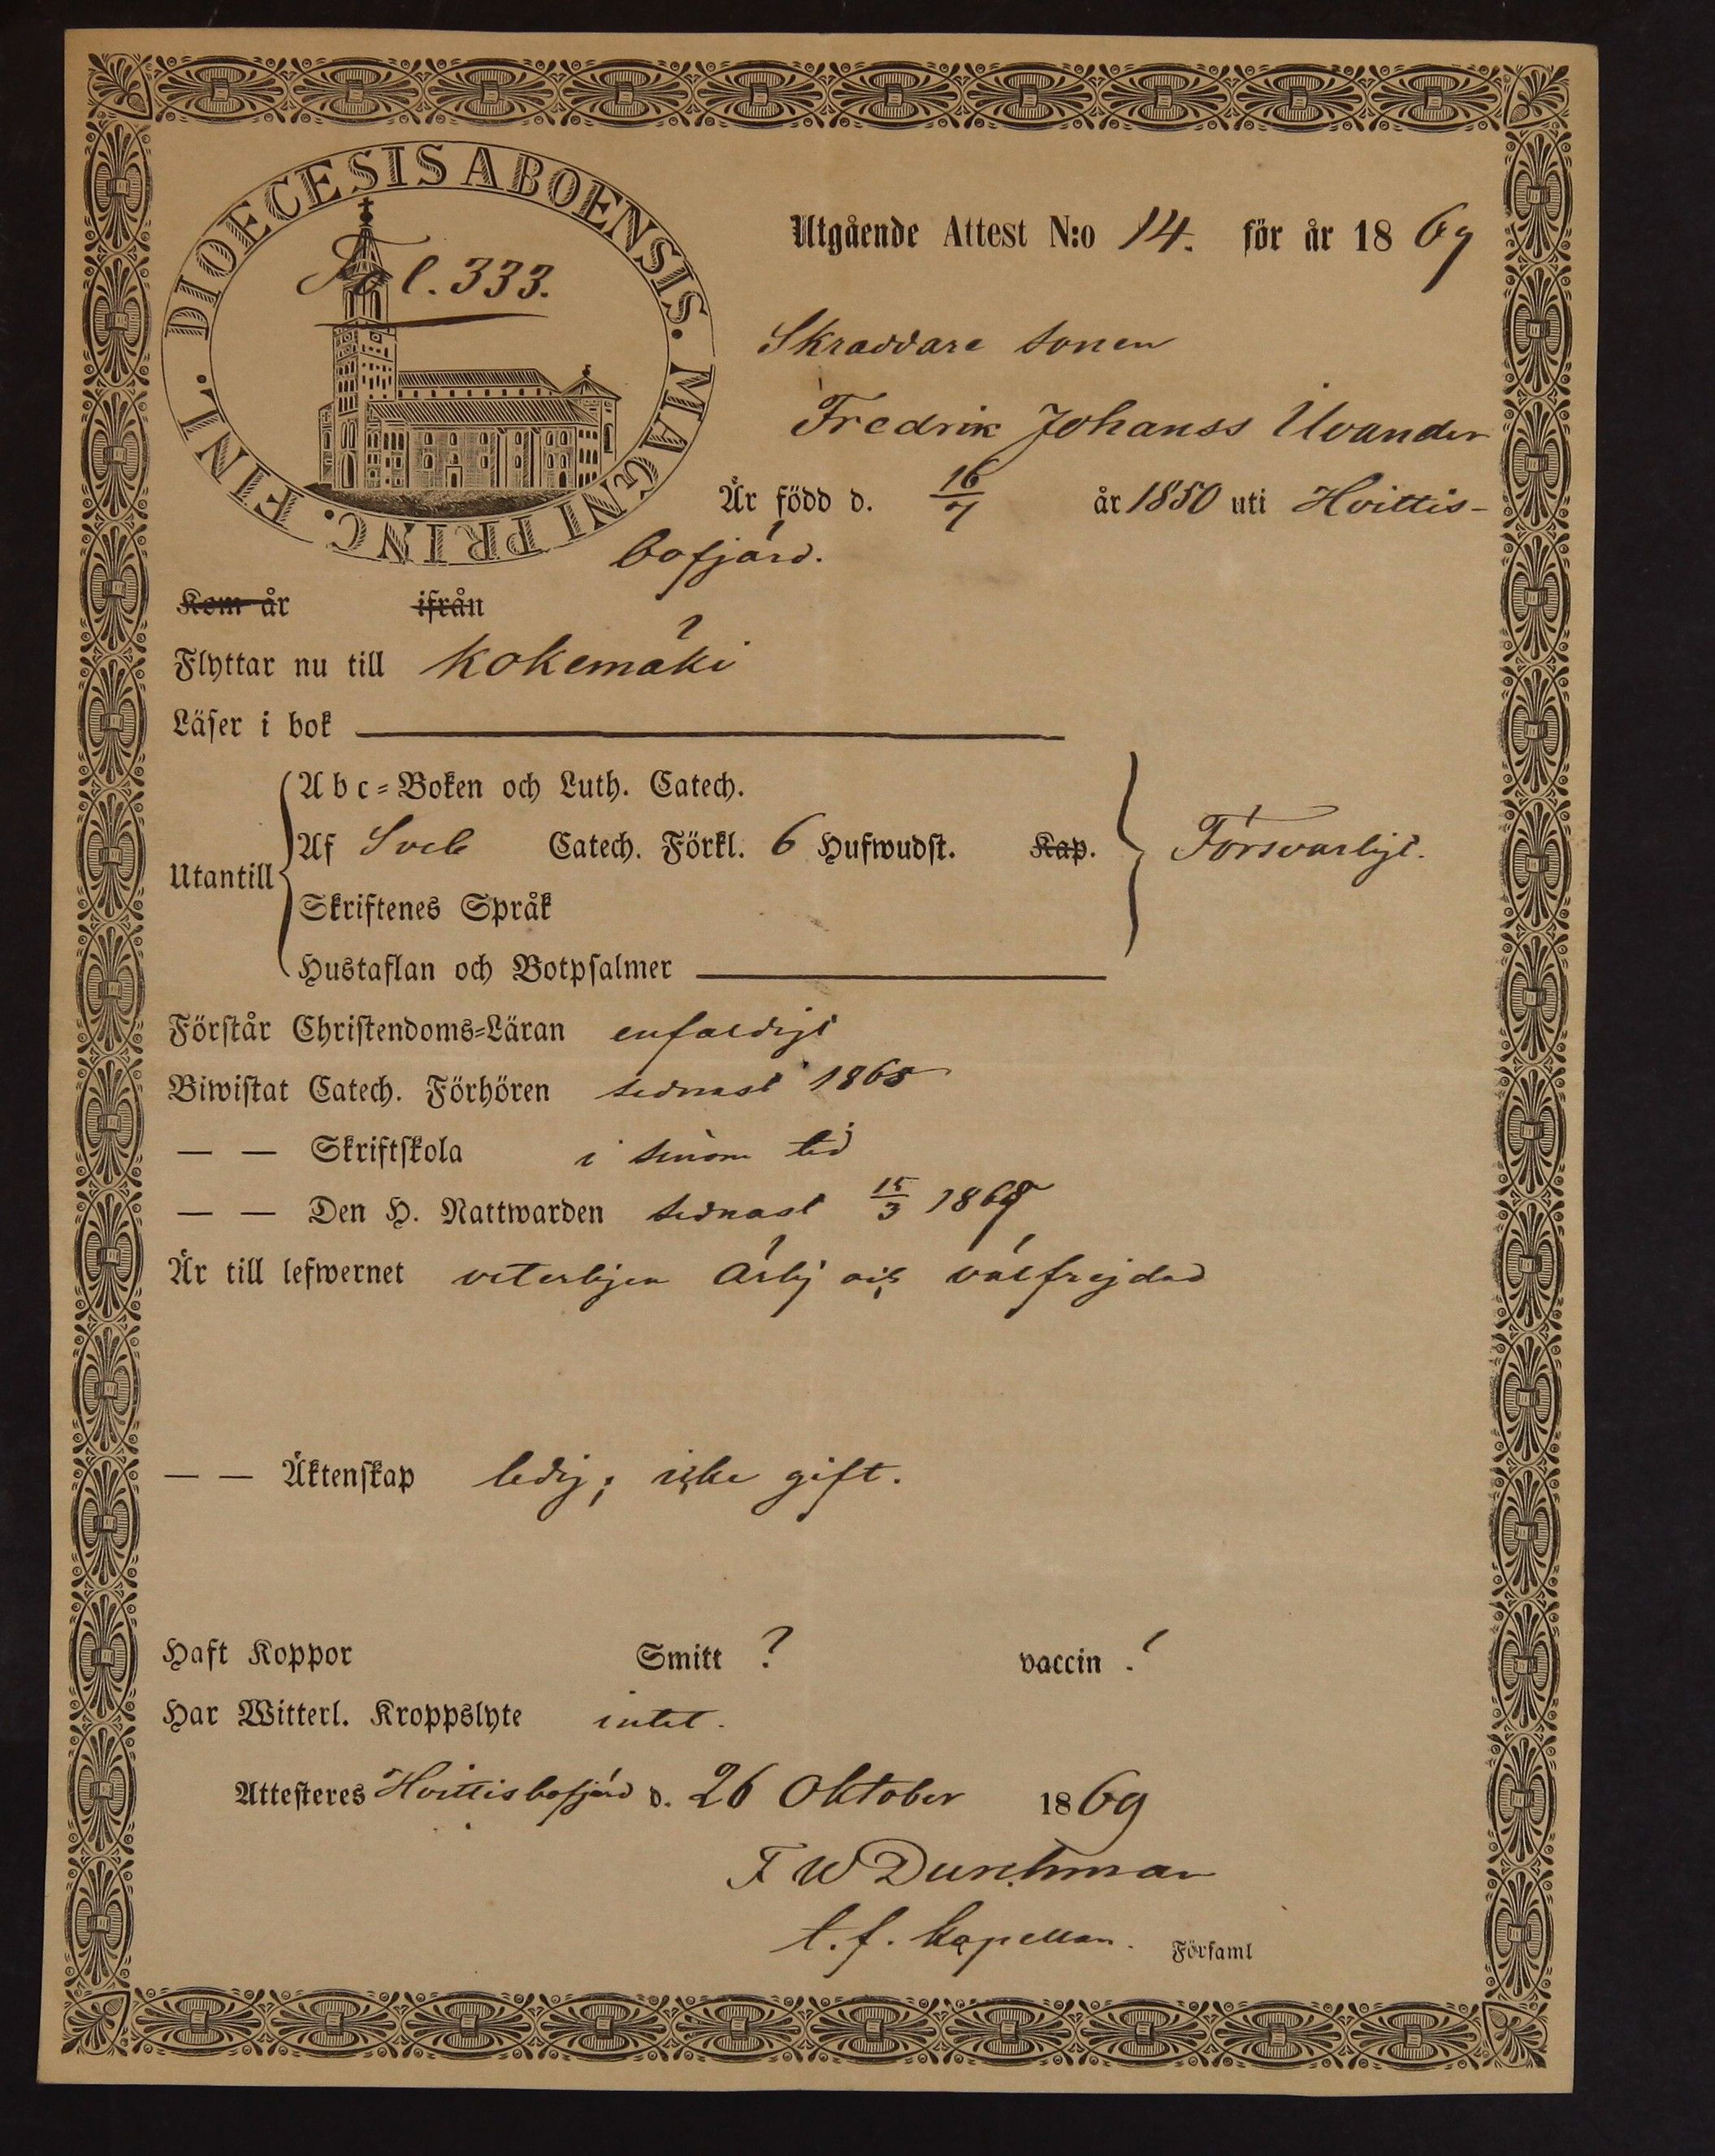 DIOECESIS ABOENSIS. MAGNI PRINC. FINL.
Fol. 333.
Utgående Attest N:o 14. för år 1869
Skraddare sonen
Fredrik Johanss
Är född d. 16/7 år 1850 uti Hvittis-
bofjärd.
Kom år ifrån
Flyttar nu till Kokemäki
Läser i bok
Utantill
Abc-Boken och Luth. Catech.
Af Sveb Catech. Förkl. 6 Hufwudst. Kap. Försvarligt.
Skriftenes Språk
Hustaflan och Botpsalmer
Förstår Christendoms-Läran enfaldigt
Biwistat Catech. Förhören sednast 1868
— — Skriftskola i sinom tid
— — Den H. Nattwarden sednast 15/3
Är till lefwernet veterligen ärlig och välfrejdad
— — Äktenskap ledig; icke gift.
Haft Koppor Smitt ? vaccin ?
Har Witterl. Kroppslyte intet.
Attesteres Hvittisbofjärd d. 26 Oktober 1869
F W Durchman
t. f. Kapellan. Församl